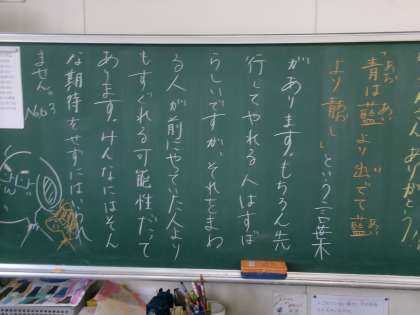 さん、ありがとう!
「青は藍より出でて藍
より青し」という言葉
があります。もちろん先
行してやれる人はすば
らしいですが、それをまわ
る人が前にやっていた人より
もすぐれる可能性だって
あります。みんなにはそん
な期待をせずにはいられ
ません。
No63